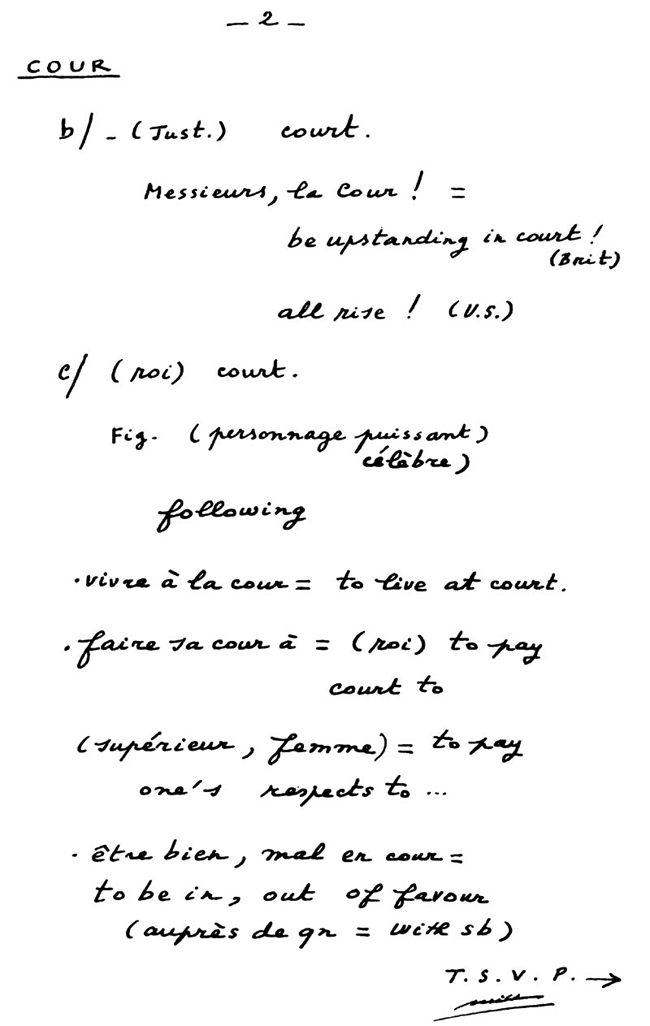 – 2 –
COUR
b/ - (Just.) court.
Messieurs, la Cour ! =
be upstanding in court !
(Brit)
all rise ! (U.S.)
c/ (roi) court.
Fig. (personnage puissant)
célèbre)
following
. vivre à la cour = to live at court.
. faire sa cour à = (roi) to pay
court to
(supérieur, femme) = to pay
one's respects to ...
. être bien, mal en cour =
to be in, out of favour
(auprès de qn = with sb)
T. S. V. P. →